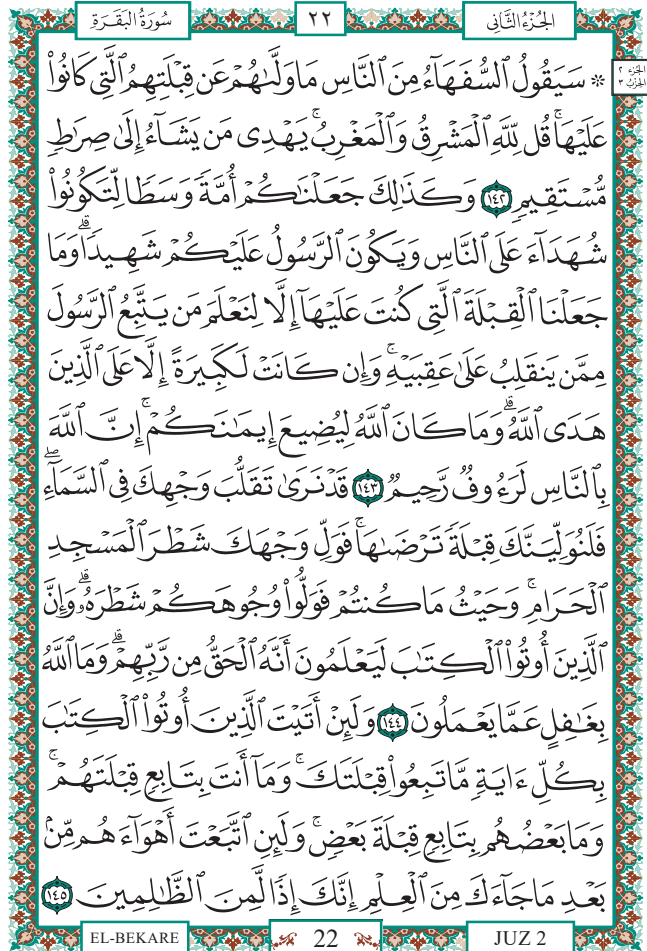 الجُزْءُ الثَّانِى
٢٢
سُورَةُ البَقَرَةِ
الجزء ٢
الحزب ٣
۞ سَيَقُولُ ٱلسُّفَهَآءُ مِنَ ٱلنَّاسِ مَا وَلَّىٰهُمْ عَن قِبْلَتِهِمُ ٱلَّتِى كَانُوا۟
عَلَيْهَا ۚ قُل لِّلَّهِ ٱلْمَشْرِقُ وَٱلْمَغْرِبُ ۚ يَهْدِى مَن يَشَآءُ إِلَىٰ صِرَٰطٍ
مُّسْتَقِيمٍ ١٤٢ وَكَذَٰلِكَ جَعَلْنَٰكُمْ أُمَّةً وَسَطًا لِّتَكُونُوا۟
شُهَدَآءَ عَلَى ٱلنَّاسِ وَيَكُونَ ٱلرَّسُولُ عَلَيْكُمْ شَهِيدًا ۗ وَمَا
جَعَلْنَا ٱلْقِبْلَةَ ٱلَّتِى كُنتَ عَلَيْهَآ إِلَّا لِنَعْلَمَ مَن يَتَّبِعُ ٱلرَّسُولَ
مِمَّن يَنقَلِبُ عَلَىٰ عَقِبَيْهِ ۚ وَإِن كَانَتْ لَكَبِيرَةً إِلَّا عَلَى ٱلَّذِينَ
هَدَى ٱللَّهُ ۗ وَمَا كَانَ ٱللَّهُ لِيُضِيعَ إِيمَٰنَكُمْ ۚ إِنَّ ٱللَّهَ
بِٱلنَّاسِ لَرَءُوفٌ رَّحِيمٌ ١٤٣ قَدْ نَرَىٰ تَقَلُّبَ وَجْهِكَ فِى ٱلسَّمَآءِ ۖ
فَلَنُوَلِّيَنَّكَ قِبْلَةً تَرْضَىٰهَا ۚ فَوَلِّ وَجْهَكَ شَطْرَ ٱلْمَسْجِدِ
ٱلْحَرَامِ ۚ وَحَيْثُ مَا كُنتُمْ فَوَلُّوا۟ وُجُوهَكُمْ شَطْرَهُۥ ۗ وَإِنَّ
ٱلَّذِينَ أُوتُوا۟ ٱلْكِتَٰبَ لَيَعْلَمُونَ أَنَّهُ ٱلْحَقُّ مِن رَّبِّهِمْ ۗ وَمَا ٱللَّهُ
بِغَٰفِلٍ عَمَّا يَعْمَلُونَ ١٤٤ وَلَئِنْ أَتَيْتَ ٱلَّذِينَ أُوتُوا۟ ٱلْكِتَٰبَ
بِكُلِّ ءَايَةٍ مَّا تَبِعُوا۟ قِبْلَتَكَ ۚ وَمَآ أَنتَ بِتَابِعٍ قِبْلَتَهُمْ ۚ
وَمَا بَعْضُهُم بِتَابِعٍ قِبْلَةَ بَعْضٍ ۚ وَلَئِنِ ٱتَّبَعْتَ أَهْوَآءَهُم مِّنۢ
بَعْدِ مَا جَآءَكَ مِنَ ٱلْعِلْمِ إِنَّكَ إِذًا لَّمِنَ ٱلظَّٰلِمِينَ ١٤٥
EL-BEKARE
22
JUZ 2